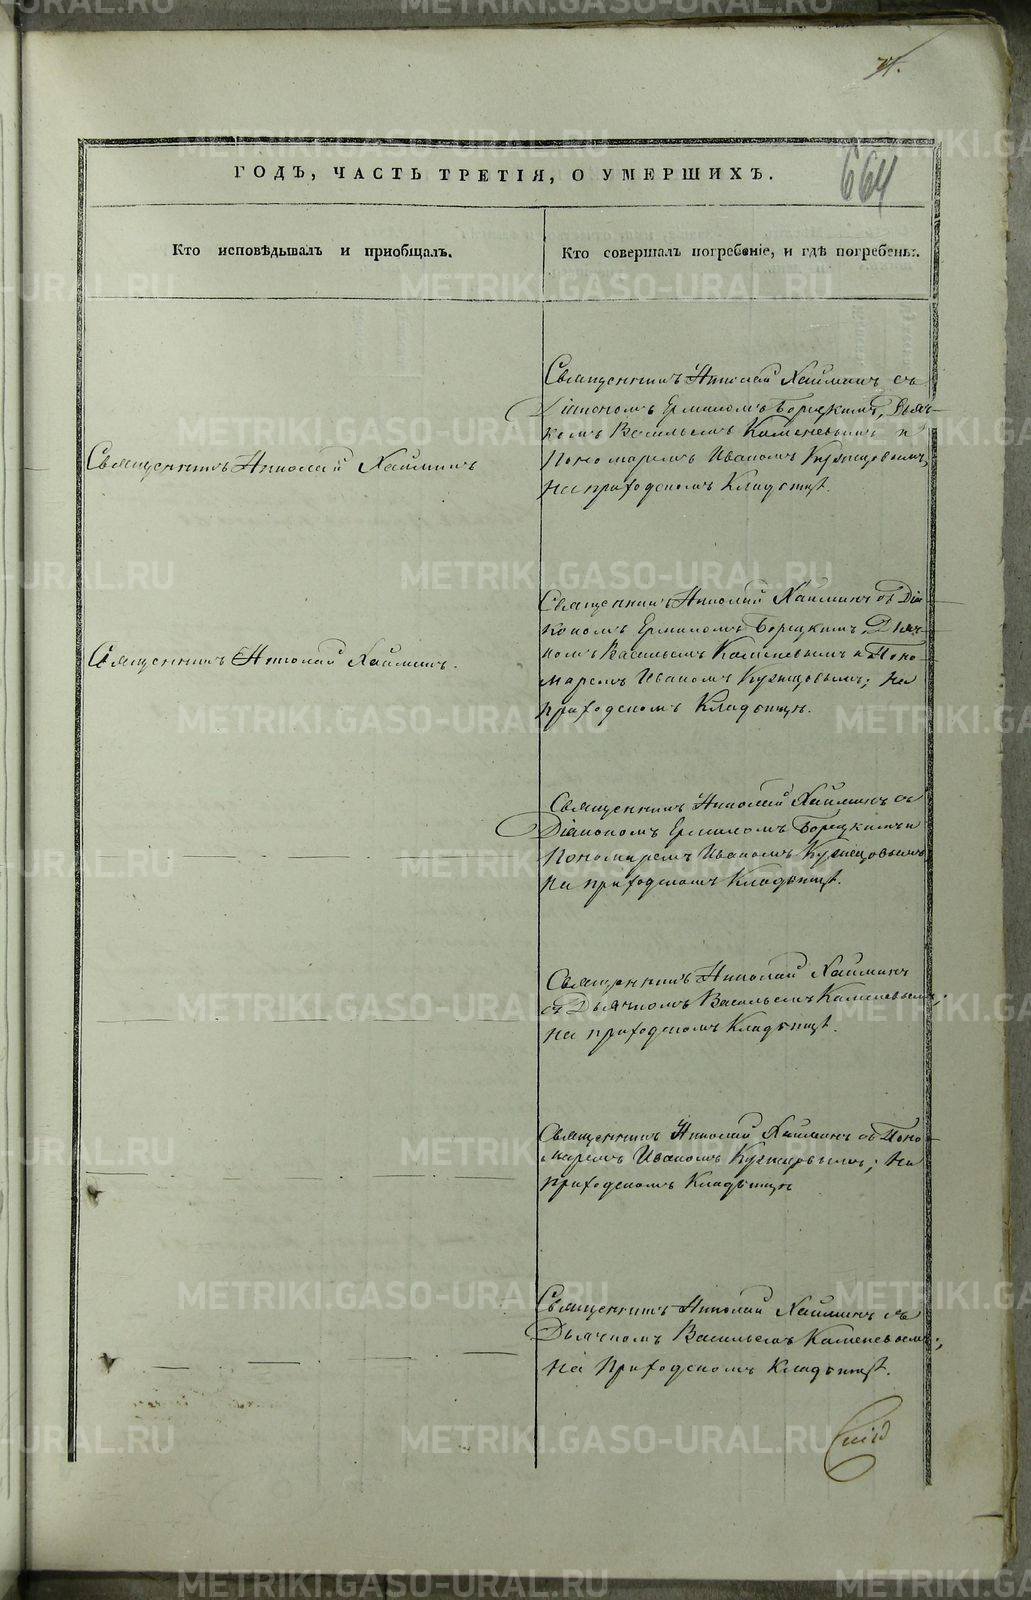 664
ГОДЪ, ЧАСТЬ ТРЕТІЯ, О УМЕРШИХЪ.
Кто исповѣдывалъ и приобщалъ.
Кто совершалъ погребеніе, и гдѣ погребены.
Священникъ Николай Хаймин
Священникъ Николай Хайминъ съ
Діакономъ Ермиломъ Борецкимъ, Дьяч-
комъ Васильемъ Каменевымъ и
Пономаремъ Иваномъ Кузнецовымъ,
На приходскомъ Кладбищѣ.
Священникъ Николай Хайминъ.
Священникъ Николай Хайминъ съ Діа-
кономъ Ермиломъ Борецкимъ, Дьяч-
комъ Васильемъ Каменевымъ и Поно-
маремъ Иваномъ Кузнецовымъ; На
приходскомъ Кладбищѣ.
Священникъ Николай Хайминъ съ
Діакономъ Ермиломъ Борецкимъ и
Пономаремъ Иваномъ Кузнецовымъ
На приходскомъ Кладбищѣ.
Священникъ Николай Хайминъ
съ Дьячкомъ Васильемъ Каменевымъ;
на приходскомъ Кладбищѣ.
Священникъ Николай Хайминъ съ Поно-
маремъ Иваномъ Кузнецовымъ; На
приходскомъ Кладбищѣ
Священникъ Николай Хайминъ съ
Дьячкомъ Васильемъ Каменевымъ;
На Приходскомъ Кладбищѣ.
METRIKI.GASO-URAL.RU